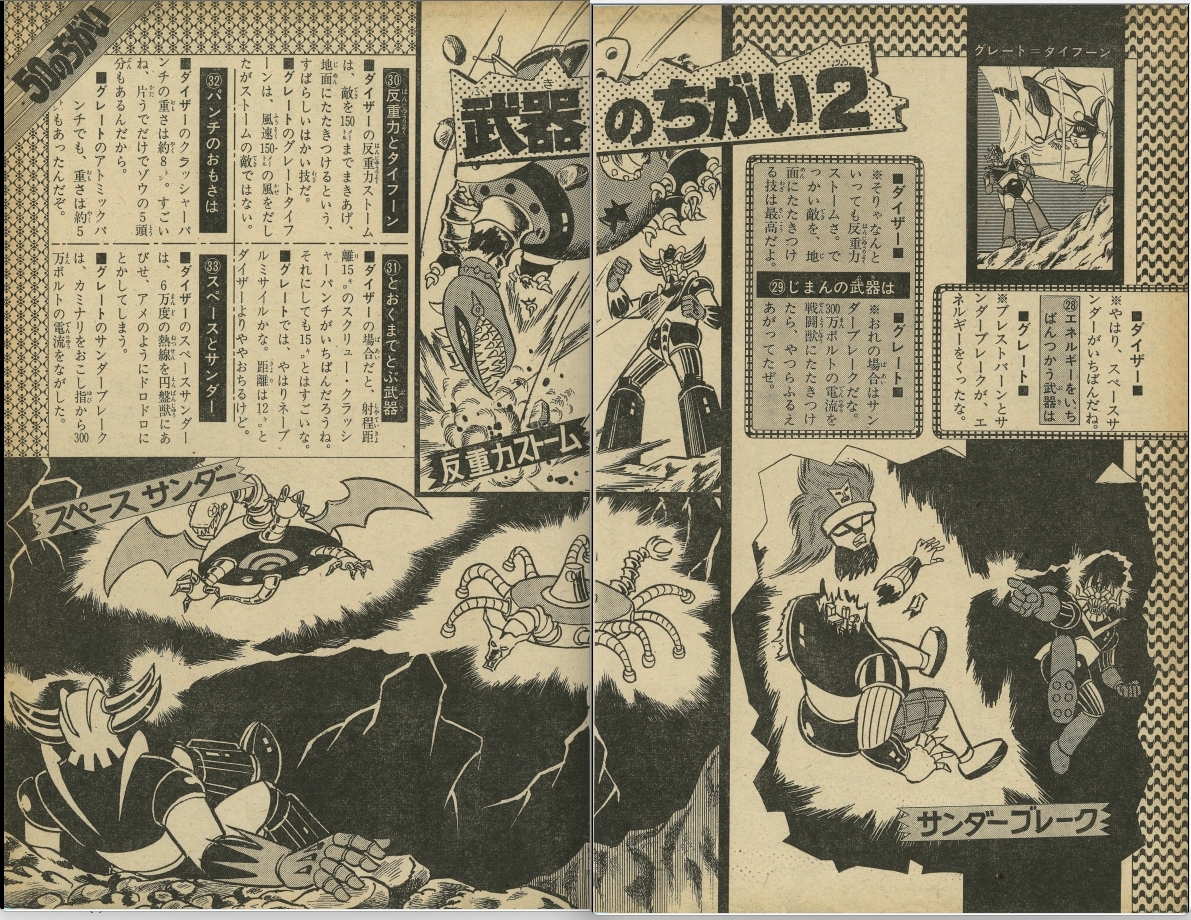 50のちがい
武器のちがい2
グレート=タイフーン
㉘エネルギーをいち
ばんつかう武器は
■ダイザー■
※やはり、スペースサ
ンダーがいちばんだね。
■グレート■
※ブレストバーンとサ
ンダーブレークが、エ
ネルギーをくったな。
㉙じまんの武器は
■ダイザー■
※そりゃなんと
いっても反重力
ストームさ。で
っかい敵を、地
面にたたきつけ
る技は最高だよ。
■グレート■
※おれの場合はサン
ダーブレークだな。
300万ボルトの電流を
戦闘獣にたたきつけ
たら、やつらふるえ
あがってたぜ。
反重力ストーム
㉚反重力とタイフーン
■ダイザーの反重力ストーム
は、敵を150㍍までまきあげ、
地面にたたきつけるという、
すばらしいはかい技だ。
■グレートのグレートタイフ
ーンは、風速150㍍の風をだし
たがストームの敵ではない。
㉛とおくまでとぶ武器
■ダイザーの場合だと、射程距
離15㌔のスクリュー・クラッシ
ャーパンチがいちばんだろうね。
それにしても15㌔とはすごいな。
■グレートでは、やはりネーブ
ルミサイルかな。距離は12㌔と
ダイザーよりややおちるけど。
㉜パンチのおもさは
■ダイザーのクラッシャーパ
ンチの重さは約8㌧。すごい
ね、片うでだけでゾウの5頭
分もあるんだから。
■グレートのアトミックパ
ンチでも、重さは約5
㌧もあったんだぞ。
㉝スペースとサンダー
■ダイザーのスペースサンダー
は、6万度の熱線を円盤獣にあ
びせ、アメのようにドロドロに
とかしてしまう。
■グレートのサンダーブレーク
は、カミナリをおこし指から300
万ボルトの電流をながした。
スペース サンダー
サンダーブレーク